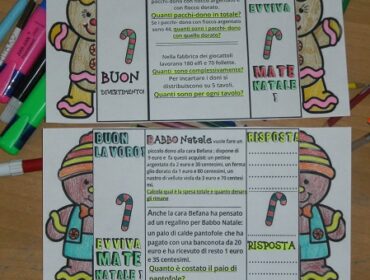 pacchi-dono con fiocco argentato e
con fiocco dorato.
Quanti pacchi-dono in totale?
Se i pacchi-dono con fiocco argentato
sono 48, quanti sono i pacchi-dono
con quello dorato?
EVVIVA
Nella fabbrica dei giocattoli
lavorano 180 elfi e 70 folletti.
Quanti sono complessivamente?
Per incartare i doni si
distribuiscono su 5 tavoli.
Quanti sono per ogni tavolo?
BUON
DIVERTIMENTO!
MATE
NATALE
!
BUON
LAVORO!
BABBO Natale vuole fare un
piccolo dono alla cara Befana : dispone di
9 euro e fa questi acquisti: un pettine
argentato da 2 euro e 30 centesimi, un ferma
giglio dorato da 1 euro e 80 centesimi, un
nastro di velluto viola da 3 euro e 70 centesi
mi.
Calcola qual è la spesa totale e quanto denaro
gli rimane
RISPOSTA
Anche la cara Befana ha pensato
ad un regalino per Babbo Natale:
un paio di calde pantofole che ha
pagato con una banconota da 20
euro e ha ricevuto di resto 1 euro
e 35 centesimi.
Quanto è costato il paio di
pantofole?
EVVIVA
MATE
NATALE !
RISPOSTA